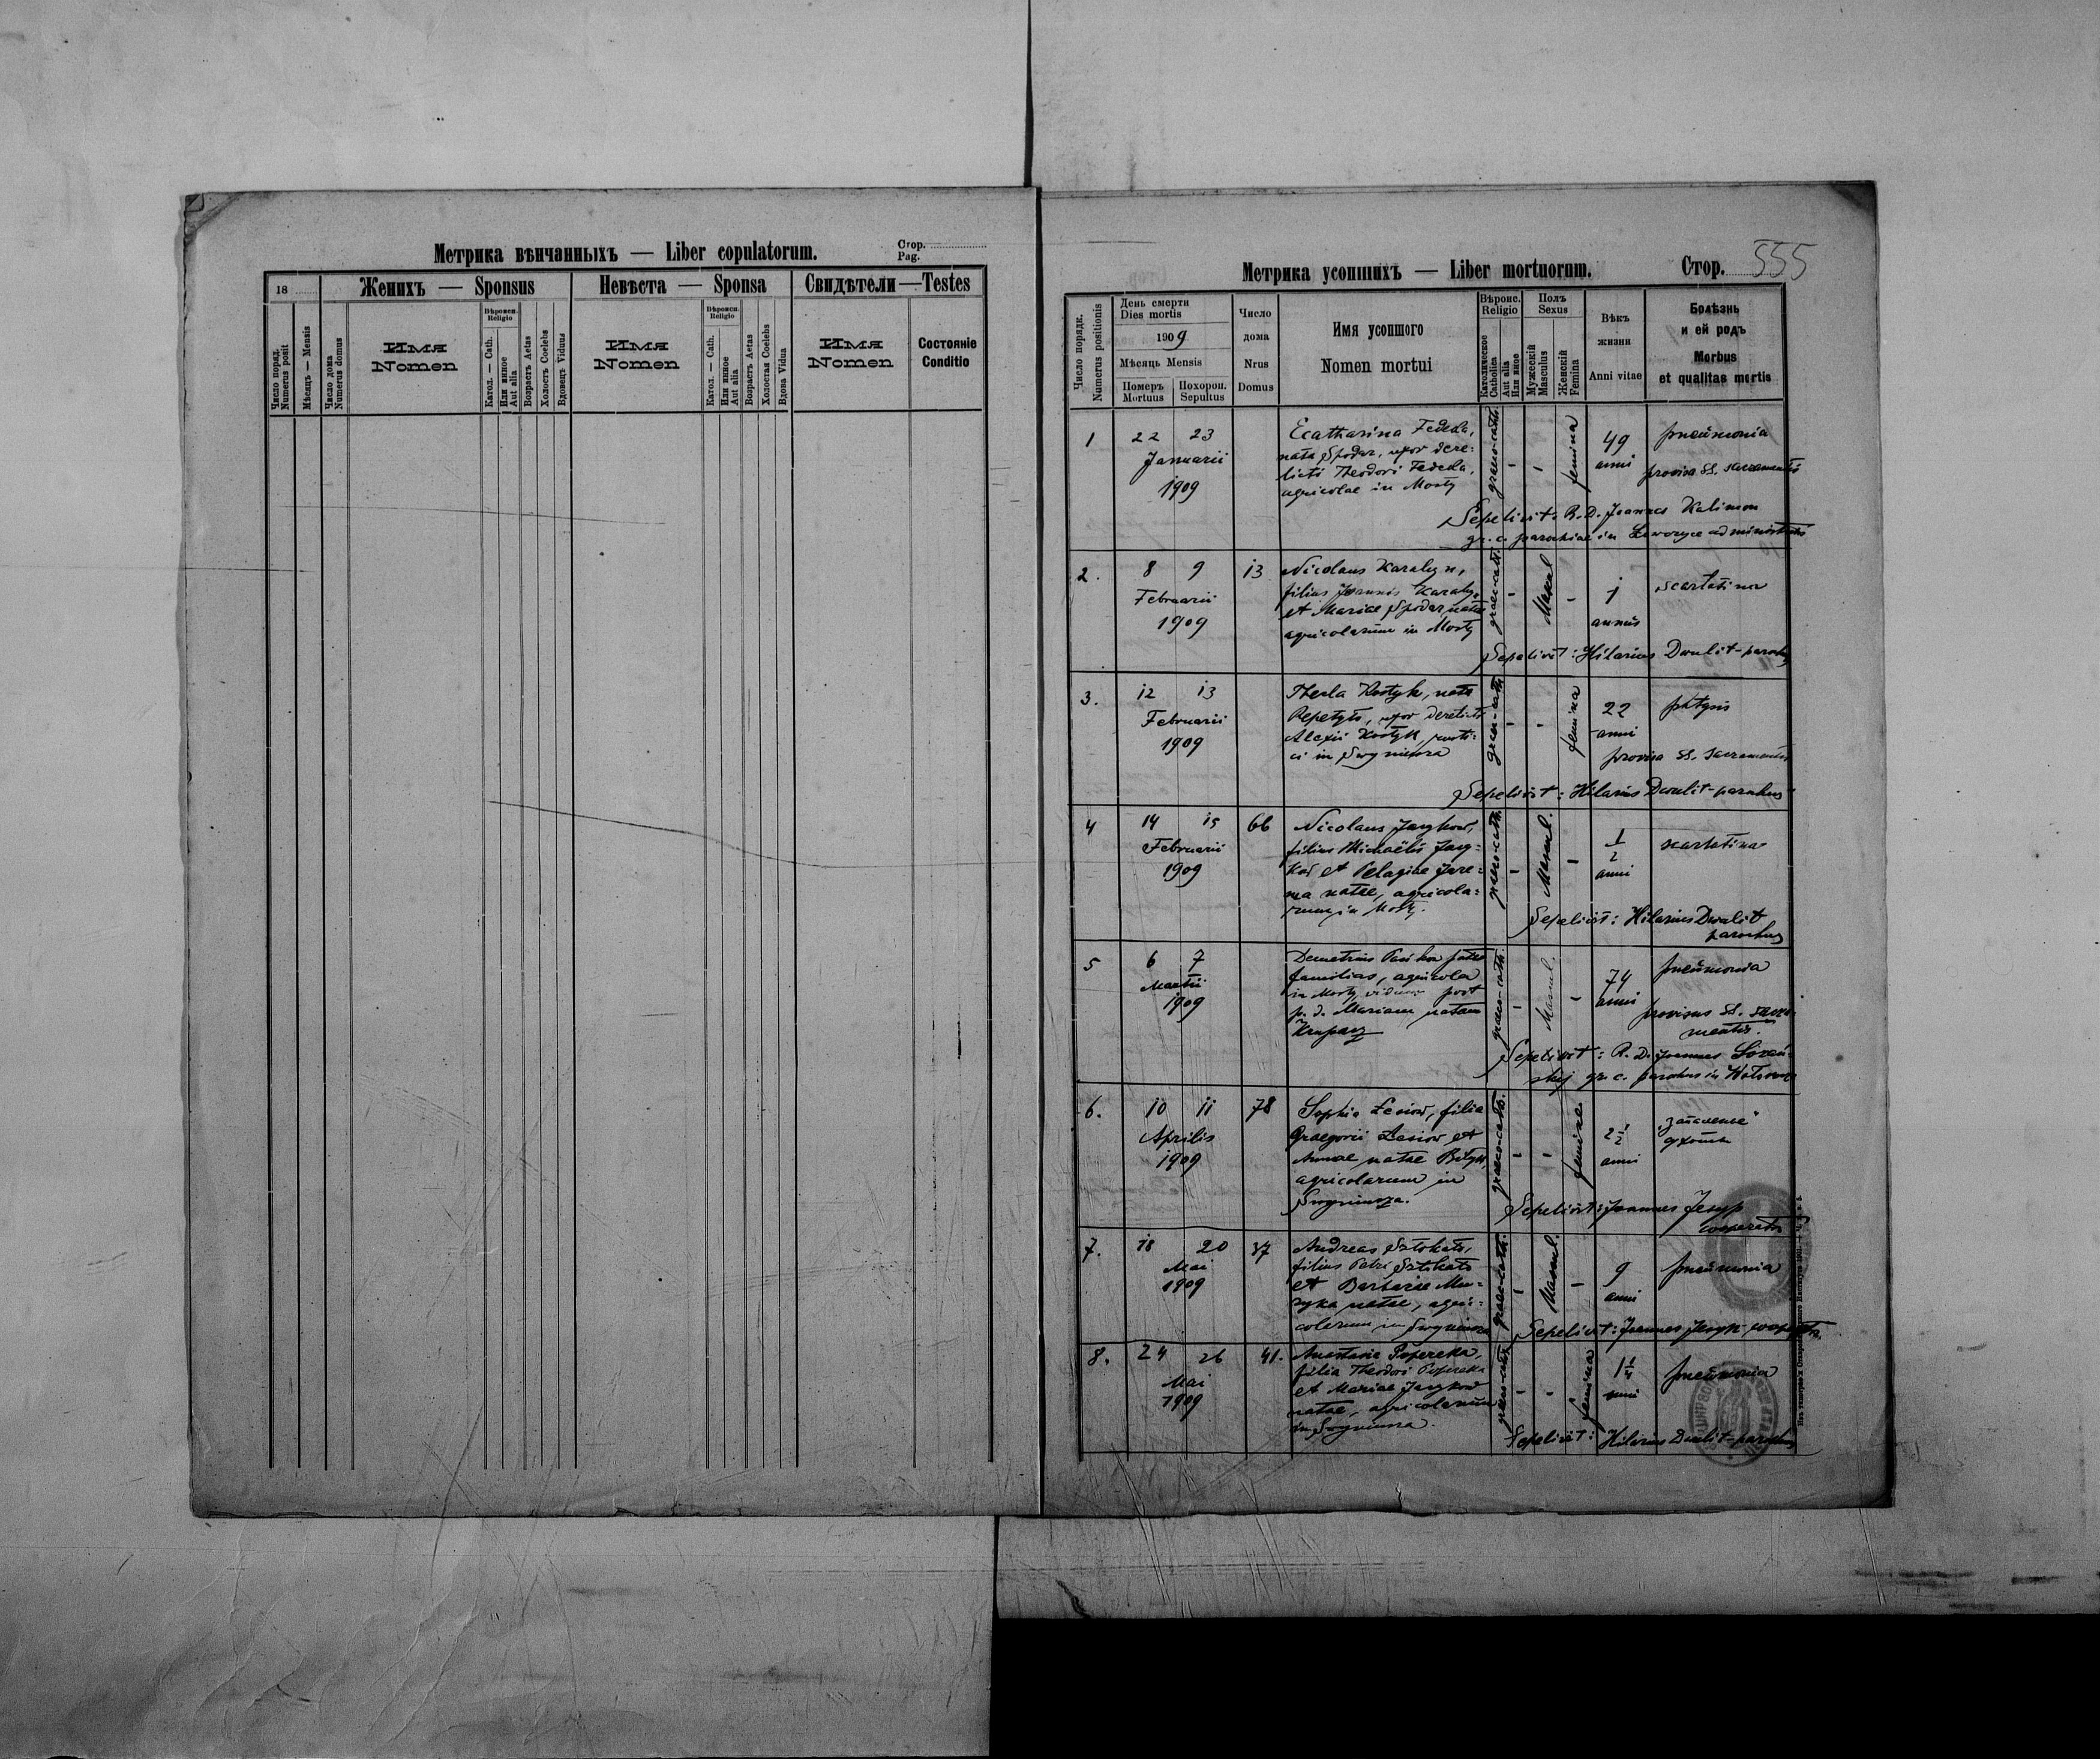 Метрика вѣнчанныхъ — Liber copulatorum.
Стор.
Pag.
18
Женихъ — Sponsus
Невѣста — Sponsa
Свидѣтели — Testes
Число поряд.
Numerus posit
Мѣсяцъ — Mensis
Число дома
Numerus domus
Имя
Nomen
Вѣроисп.
Religio
Катол. — Cath.
Или инное
Aut alia
Возрастъ Aetas
Холостъ Coelebs
Вдовецъ Viduus
Имя
Nomen
Вѣроисп.
Religio
Катол. — Cath.
Или инное
Aut alia
Возрастъ Aetas
Холостая Coelebs
Вдова Vidua
Имя
Nomen
Состояніе
Conditio
Метрика усопшихъ — Liber mortuorum.
Стор. 555
Число порядк.
Numerus positionis
День смерти
Dies mortis
1909
Мѣсяць Mensis
Померъ
Mortuus
Похорон.
Sepultus
Число
дома
Nrus
Domus
Имя усопшого
Nomen mortui
Вѣроис.
Religio
Католическое
Catholica
Aut alia
Или иное
Полъ
Sexus
Мужескій
Masculus
Женскій
Femina
Вѣкъ
жизни
Anni vitae
Болѣзнь
и ей родъ
Morbus
et qualitas mortis
1
22 23
Januarii
1909
Ecatharina Fedeka,
nata Spodar, uxor dere-
licti Theodori Fedeka,
agricolae in Mosty
graeco-cath.
- -
femina
49
anni
pneumonia
provisa SS. sacramentis
Sepelivit: R. D. Joannes Kalimon
gr. c. parochiae in administrator
2.
8 9
Februarii
1909
13
Nicolaus Karalyn,
filius Joannis
et Mariae Spodar natae
agricolarum in Mosty
graeco-cath.
-
Mascul
-
1
annus
scarlatina
Sepelivit: Hilarius Dwulit-parochus
3.
12 13
Februarii
1909
Thecla Kostyk, nata
uxor derelicti
Alexii Kostyk,
in Swyniusza
graeco-cath.
- -
femina
22
anni
phtysis
provisa SS. Sacramentis
Sepelivit: Hilarius Dwulit-parochus
4
14 15
Februarii
1909
66
Nicolaus Jarykow,
filius Michaëlis Jary-
kow et Pelagiae Jare-
ma natae, agricola-
rum in Mosty.
graeco-cath.
-
Mascul.
-
1/2
anni
scarlatina
Sepelivit: Hilarius Dwulit
parochus
5
6 7
Martii
1909
Demetrius pater
familias, agricola
in Mosty, viduus post
p. d. Mariam natam
graeco-cath.
-
Mascul.
-
74
anni
pneumonia
provisus SS. sacra-
mentis.
Sepelivit: R. D. Joannes
gr. c. parochus in
6.
10 11
Aprilis
1909
78
Sophia Lesiow, filia
Graegorii Lesiow et
Annae natae
agricolarum in
Swyniusza.
graeco-cath.
- -
femina
2 1/2
anni
Sepelivit: Joannes Jesyp
cooperator
7.
18 20
Mai
1909
37
Andreas
filius Petri
et Barbarae Mu-
zyka natae, agri-
colarum in Swyniusza
graeco-cath.
-
Mascul.
-
9
anni
pneumonia
Sepelivit: Joannes Jesyp cooperator.
8.
24 26
Mai
1909
41.
Anastasia Papereka,
filia Theodori Papereka
et Mariae Jarykow
natae, agricolarum
in Swyniusza.
graeco-cath.
- -
femina
1 1/4
anni
pneumonia
Sepelivit: Hilarius Dwulit-parochus